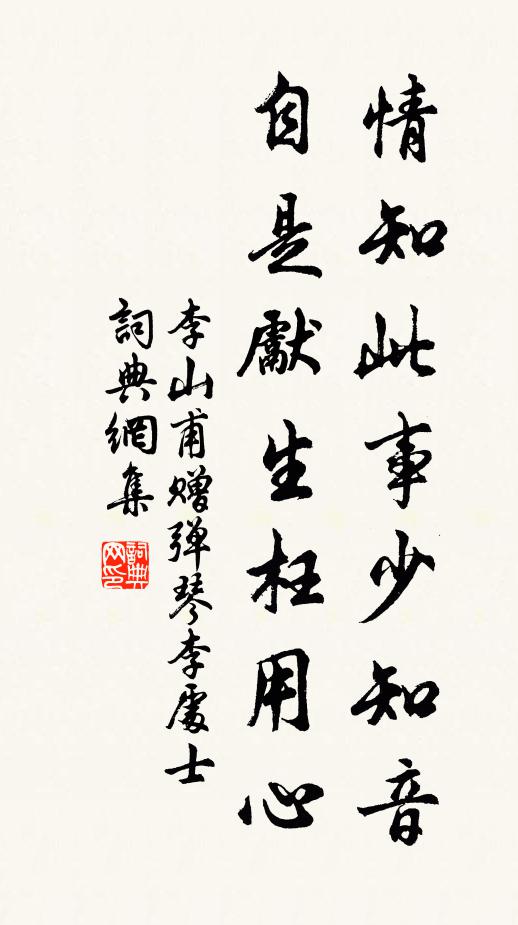 情知此事少知音
自是獻生枉用心
李山甫贈弹琴李處士
詞典網集
詞典网印